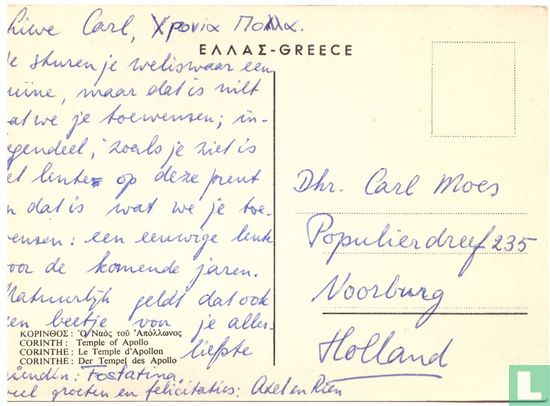 Lieve Carl, Χρονια Πολλα.
ΕΛΛΑΣ-GREECE
We sturen je weliswaar een
ruïne, maar dat is niet
wat we je toewensen; in-
tegendeel, zoals je ziet is
het lente op deze prent
en dat is wat we je toe-
wensen: een eeuwige lente
voor de komende jaren.
Natuurlijk geldt dat ook
een beetje voor je aller-
liefste
ΚΟΡΙΝΘΟΣ: Ὁ Ναὸς τοῦ Ἀπόλλωνος
CORINTH: Temple of Apollo
CORINTHE: Le Temple d'Apollon
CORINTHE: Der Tempel des Apollo
vriendin: Fostatina
veel groeten en felicitaties: Axel en Rien
Dhr. Carl Moes
Populierdreef 235
Voorburg
Holland